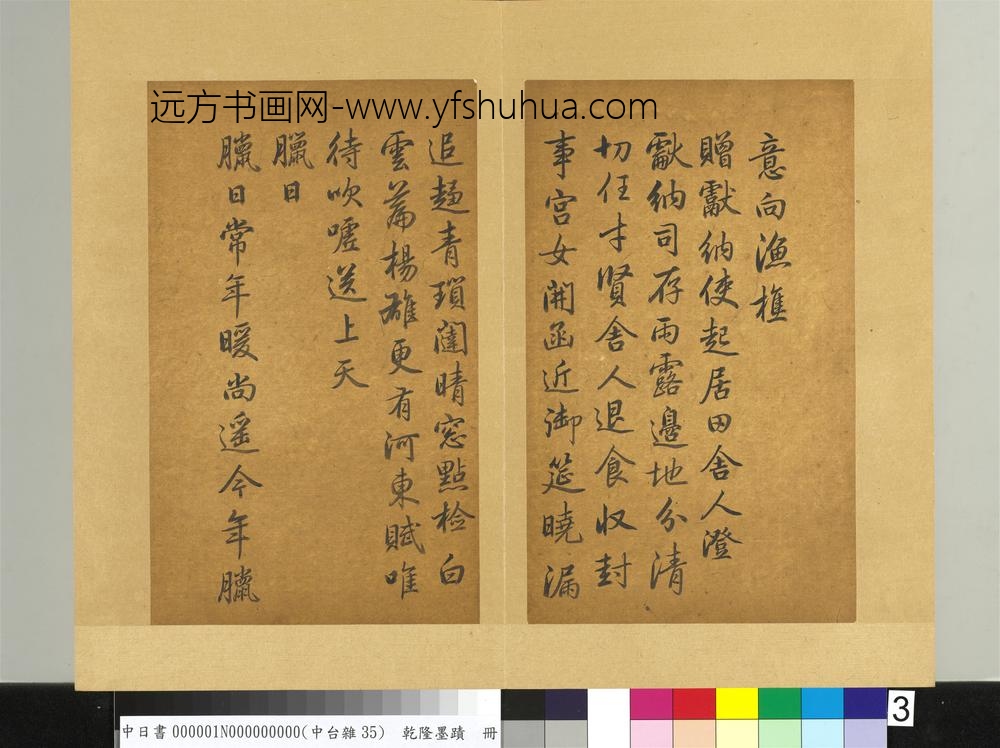 远方书画网-www.yfshuhua.com
意向漁樵
贈獻納使起居田舍人澄
獻納司存雨露邊地分清
切任才賢舍人退食收封
事宮女開函近御筵曉漏
追趨青瑣闥晴窓點檢白
雲篇楊雄更有河東賦唯
待吹噓送上天
臘日
臘日常年暖尚遥今年臘
3
中日書000001N000000000(中台雜35) 乾隆墨蹟 冊